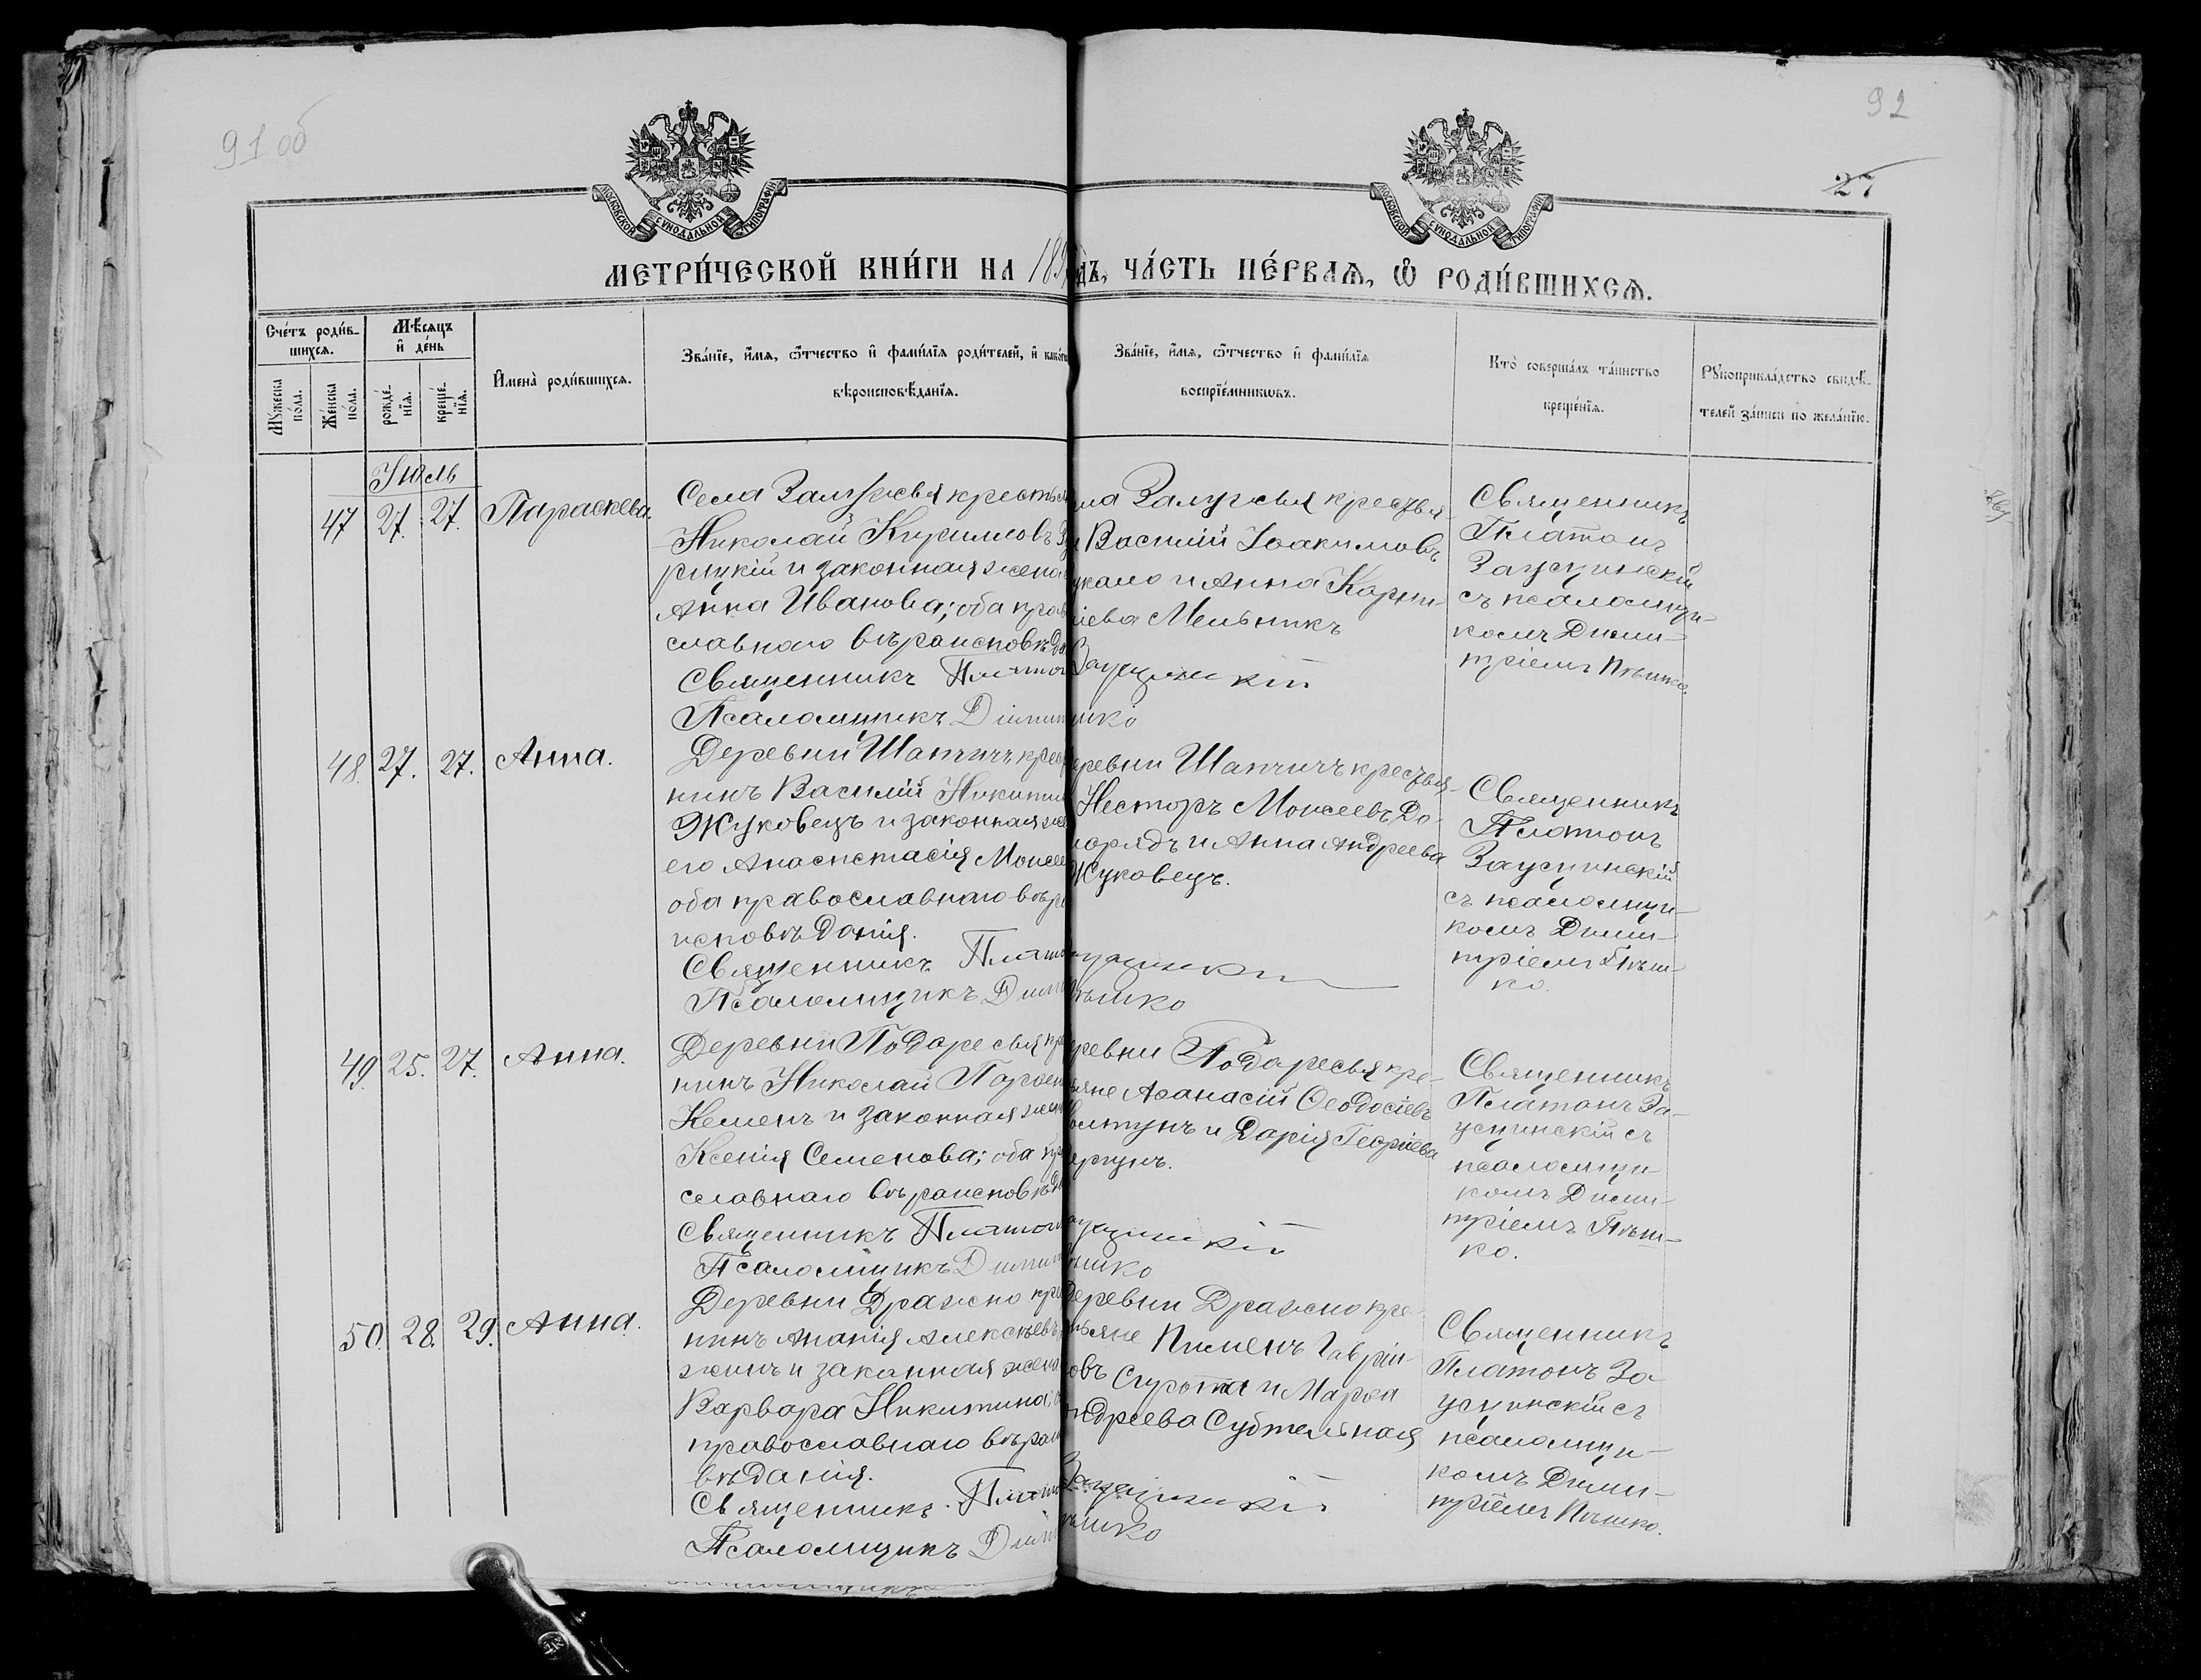 91 об
92
27
МОСКОВСКОЙ СѴНОДАЛЬНОЙ ТИПОГРАФІИ
МОСКОВСКОЙ СѴНОДАЛЬНОЙ ТИПОГРАФІИ
МЕТРИ́ЧЕСКОЙ КНИ́ГИ НА 189 дъ, ЧА́СТЬ ПЕ́РВАѦ, Ѡ҆ РОДИ́ВШИХСѦ.
Сче́тъ роди́в-
шихсѧ.
Мꙋ́жеска по́ла.
Же́нска по́ла.
Мѣ́сѧцъ и҆ де́нь
рожде́-нїѧ.
креще́-нїѧ.
И҆мена̀ роди́вшихсѧ.
Зва́нїе, и҆́мѧ, ѻ҆́тчество и҆ фами́лїѧ роди́телей, и҆ како́гѡ
вѣроисповѣ́данїѧ.
Зва́нїе, и҆́мѧ, ѻ҆́тчество и҆ фами́лїѧ
воспрїе́мникѡвъ.
Кто̀ соверша́лъ та́инство
креще́нїѧ.
Рꙋкоприкла́дство свидѣ́-
телей за́писи по жела́нїю.
Іюль
47 27. 27. Параскева.
Села Залужья крестья
Николай Кирилловъ
рицкій и законная жена
Анна Иванова; оба прав
славнаго вѣроисповѣда
Священникъ Платон
Псаломщикъ Димит
ла Залужья крестья-
Василій Іоакимовъ
укало и Анна Карни-
іева Мельникъ
Заусцинскій
шко
Священникъ
Платонъ
Заусцинскій
съ псаломщи-
комъ Дими-
тріемъ Пѣшко.
48. 27. 27. Анна.
Деревни Шапчичъ крес
нинъ Василій Никити
Жуковецъ и законная же
его Анастасія Моисее
оба православнаго вѣро
исповѣданія.
Священникъ Плато
Псаломщикъ Дими
еревни Шапчичъ крестья-
Несторъ Моисеевъ До-
морядъ и Анна Андреева
Жуковецъ.
усцинскій
ѣшко
Священникъ
Платонъ
Заусцинскій
съ псаломщи-
комъ Дими-
тріемъ Пѣш-
ко.
49. 25. 27. Анна.
Деревни Подаресья кр
нинъ Николай Парфен
Кеменъ и законная жен
Ксенія Семенова; оба пр
славнаго вѣроисповѣд
Священникъ Платон
Псаломщикъ Димит
ревни Подаресья кре-
яне Аѳанасій Ѳеодосіевъ
олтунъ и Дарія Георгіева
ергунъ.
аусцинскій
ѣшко
Священникъ
Платонъ За-
усцинскій съ
псаломщи-
комъ Дими-
тріемъ Пѣш-
ко.
50. 28. 29. Анна.
Деревни Дражно кре
нинъ Ананія Алексѣевъ
жинъ и законная жена
Варвара Никитина;
православнаго вѣрои
вѣданія.
Священникъ Плато
Псаломщикъ Дими
еревни Дражно кре-
ьяне Пименъ Гаврии-
овъ Сирота и Марѳа
ндреева Субтельная
Заусцинскій
ѣшко
Священникъ
Платонъ За-
усцинскій съ
псаломщи-
комъ Дими-
тріемъ Пѣшко.